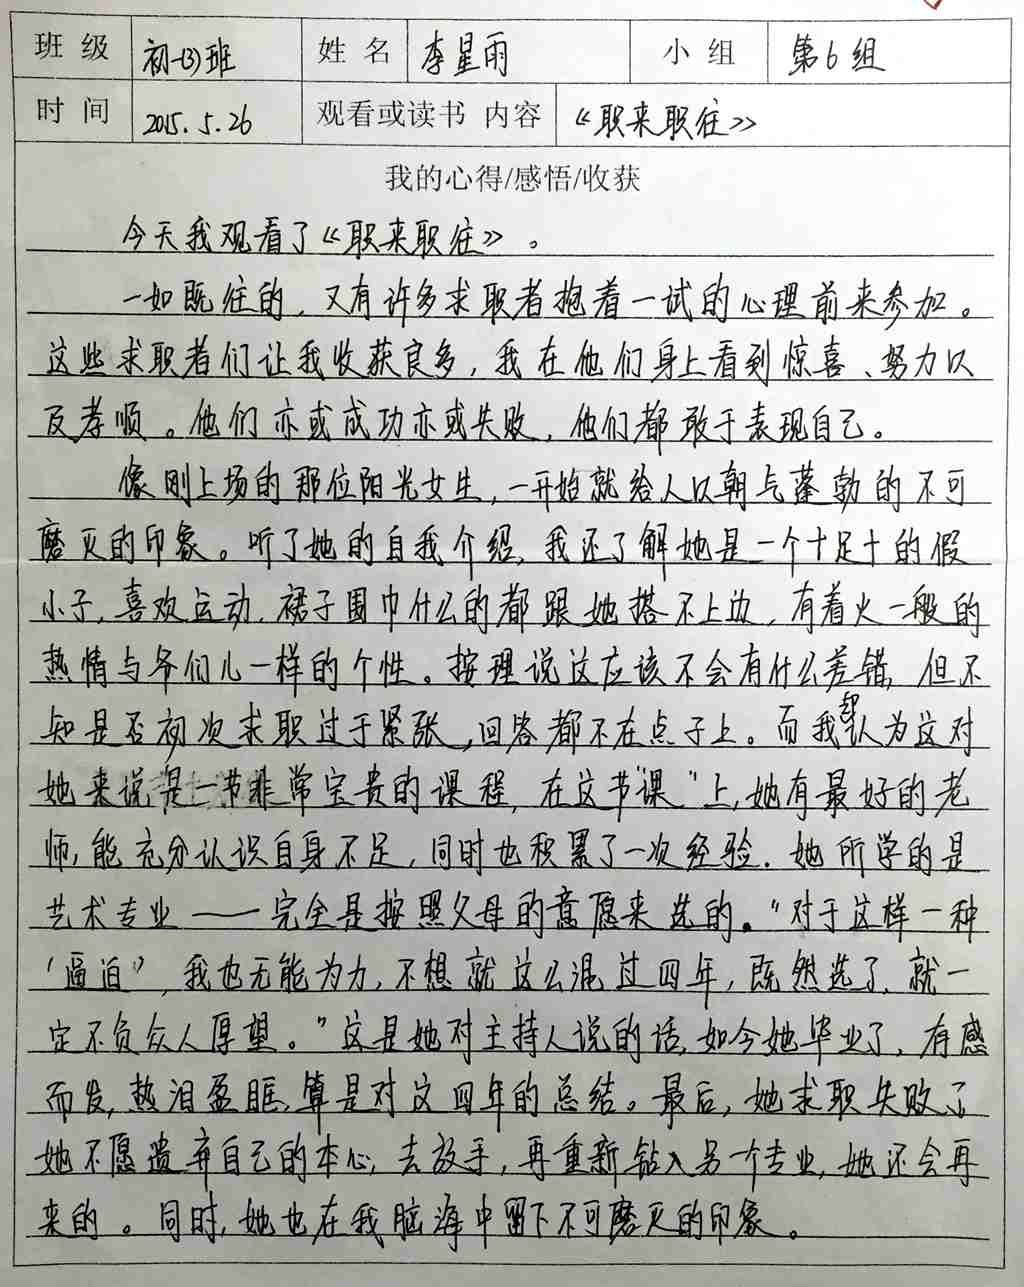 班级 初一(3)班 姓名 李星雨 小组 第6组
时间 2015.5.26 观看或读书 内容 《职来职往》
我的心得/感悟/收获
今天我观看了《职来职往》。
一如既往的,又有许多求职者抱着一试的心理前来参加。
这些求职者们让我收获良多,我在他们身上看到惊喜、努力以
及孝顺。他们亦或成功亦或失败,他们都敢于表现自己。
像刚上场的那位阳光女生,一开始就给人以朝气蓬勃的不可
磨灭的印象。听了她的自我介绍,我还了解她是一个十足十的假
小子,喜欢运动,裙子围巾什么的都跟她搭不上边,有着火一般的
热情与爷们儿一样的个性。按理说这应该不会有什么差错,但不
知是否初次求职过于紧张,回答都不在点子上。而我却认为这对
她来说是一节非常宝贵的课程,在这节“课”上,她有最好的老
师,能充分认识自身不足,同时也积累了一次经验。她所学的是
艺术专业——完全是按照父母的意愿来选的。“对于这样一种
‘逼迫’,我也无能为力,不想就这么混过四年,既然选了,就一
定不负众人厚望。”这是她对主持人说的话,如今她毕业了,有感
而发,热泪盈眶,算是对这四年的总结。最后,她求职失败了
她不愿遗弃自己的本心,去放手,再重新钻入另一个专业,她还会再
来的。同时,她也在我脑海中留下不可磨灭的印象。